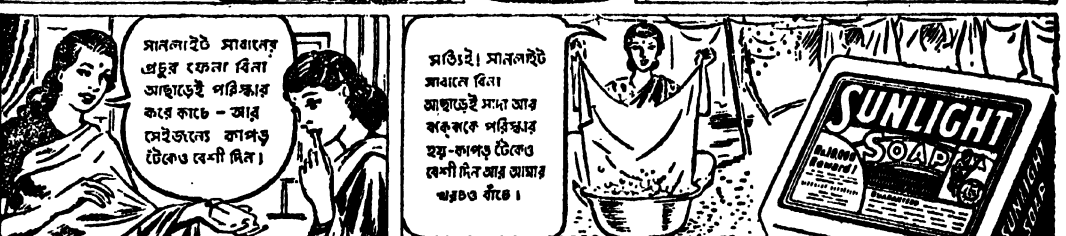 সানলাইট সাবানের
প্রচুর ফেনা বিনা
আছাড়েই পরিষ্কার
করে কাচে – আর
সেইজন্যে কাপড়
টেঁকেও বেশী দিন।
সত্যিই! সানলাইট
সাবানে বিনা
আছাড়েই সাদা আর
ঝক্‌ঝকে পরিষ্কার
হয়-কাপড় টেঁকেও
বেশী দিন আর আমার
খরচও বাঁচে।
SUNLIGHT
SOAP
Rs.10,000
Reward!
Guaranteed
SUNLIGHT
SOAP